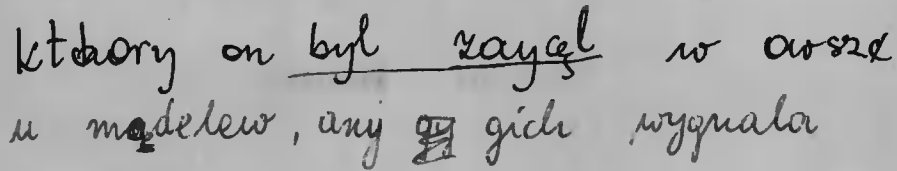 ktory on był zajęł w awsze
u mądelew, any gich wygnala